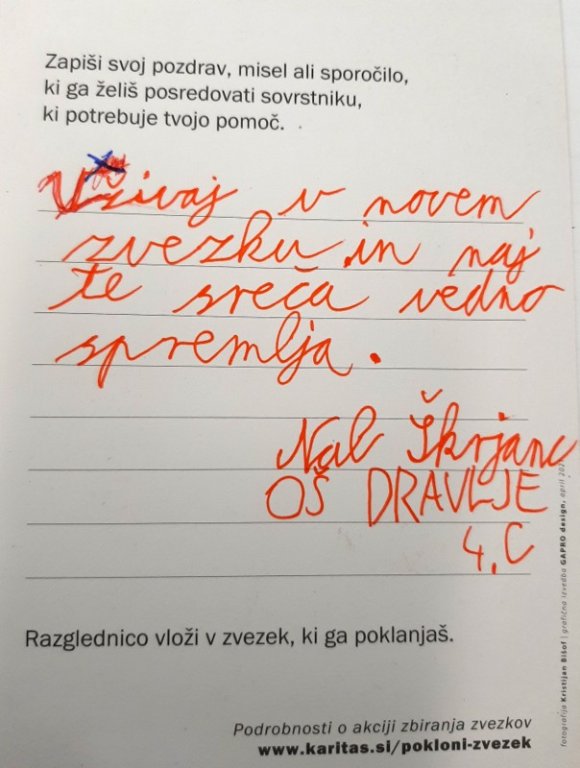 Zapiši svoj pozdrav, misel ali sporočilo,
ki ga želiš posredovati sovrstniku,
ki potrebuje tvojo pomoč.
Vživaj v novem
zvezku in naj
te sreča vedno
spremlja.
Nal Škrjanc
OŠ DRAVLJE
4. C
Razglednico vloži v zvezek, ki ga poklanjaš.
Podrobnosti o akciji zbiranja zvezkov
www.karitas.si/pokloni-zvezek
fotografija Kristijan Bišof | grafična izvedba GAPRO design, april